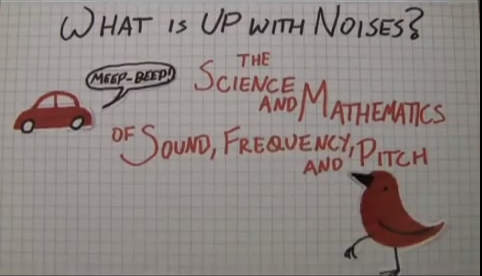 WHAT IS UP WITH NOISES?
MEEP-BEEP!
THE
SCIENCE
AND MATHEMATICS
OF SOUND, FREQUENCY,
AND PITCH